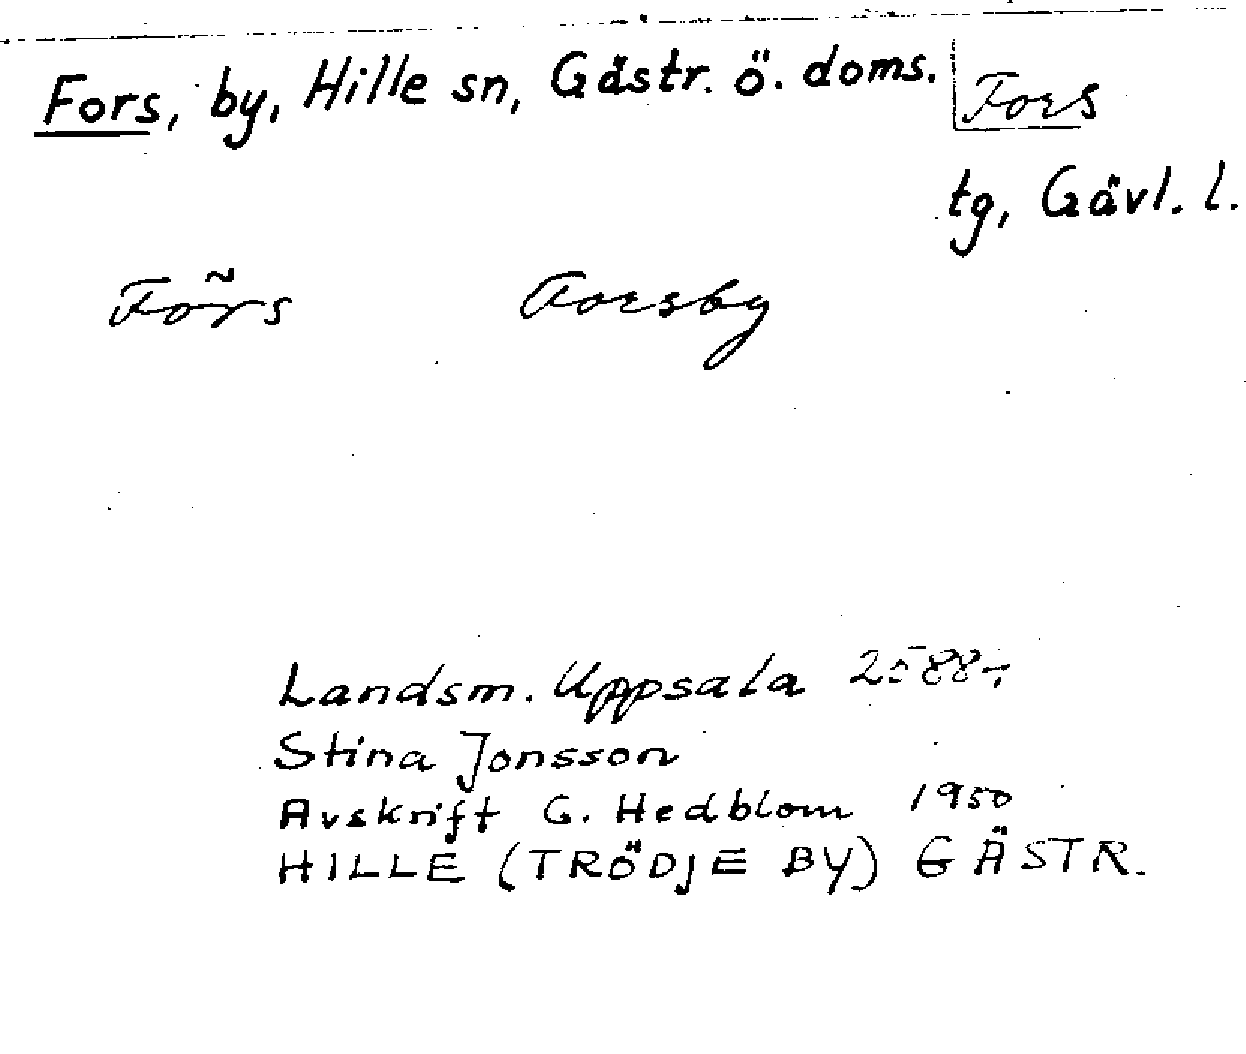 Fors, by, Hille sn, Gästr. ö. doms. Fors
tg, Gävl. l.
Förs Forsby
Landsm. Uppsala 2588:
Stina Jonsson
Avskrift G. Hedblom 1950
HILLE (TRÖDJE BY) GÄSTR.